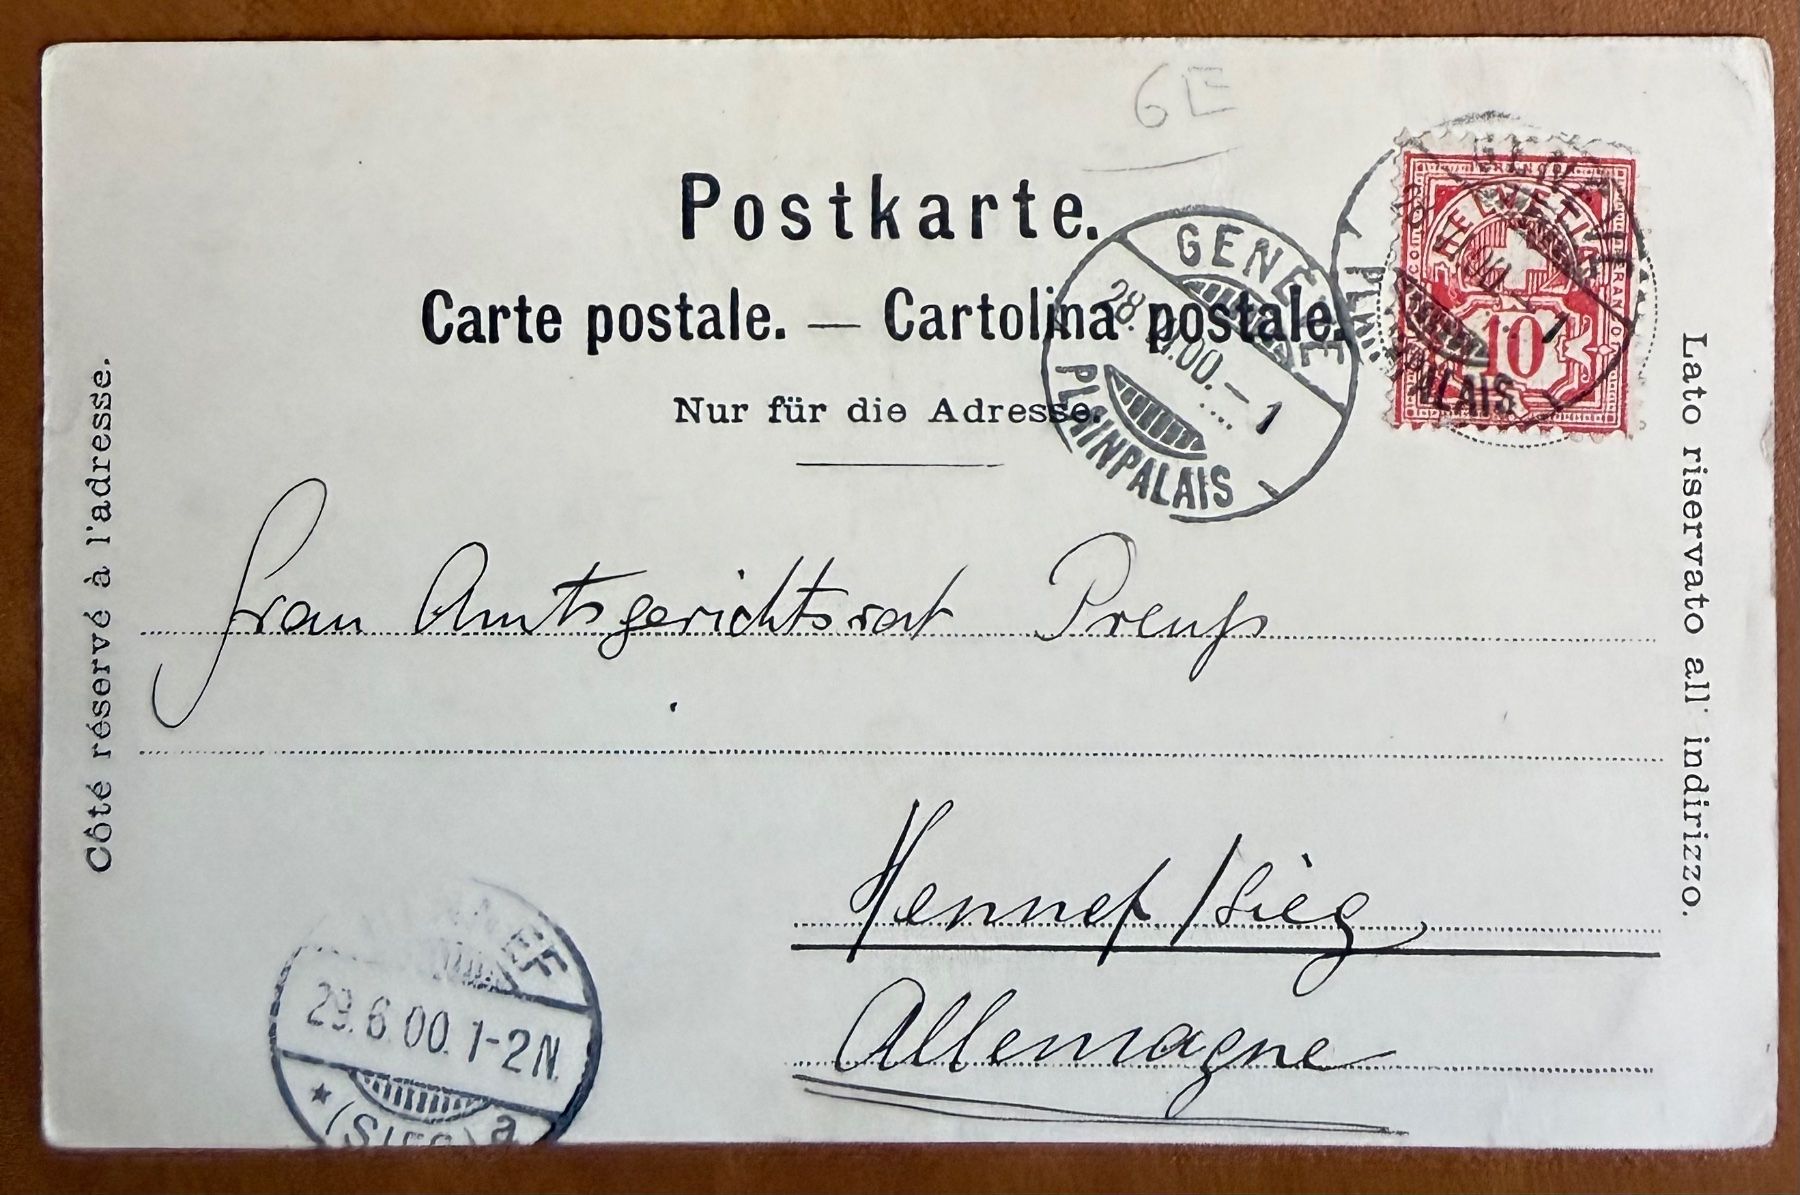 6E
Postkarte.
Carte postale. — Cartolina postale.
Nur für die Adresse.
Côté réservé à l'adresse.
Lato riservato all' indirizzo.
HELVETIA
FRANCO
10
GENÈVE
PLAINPALAIS
GENÈVE
28. 00.–1
PLAINPALAIS
Frau Amtsgerichtsrat Preuß
Hennef / Sieg
Allemagne
HENNEF
29.6.00.1-2N.
* (SIEG) a